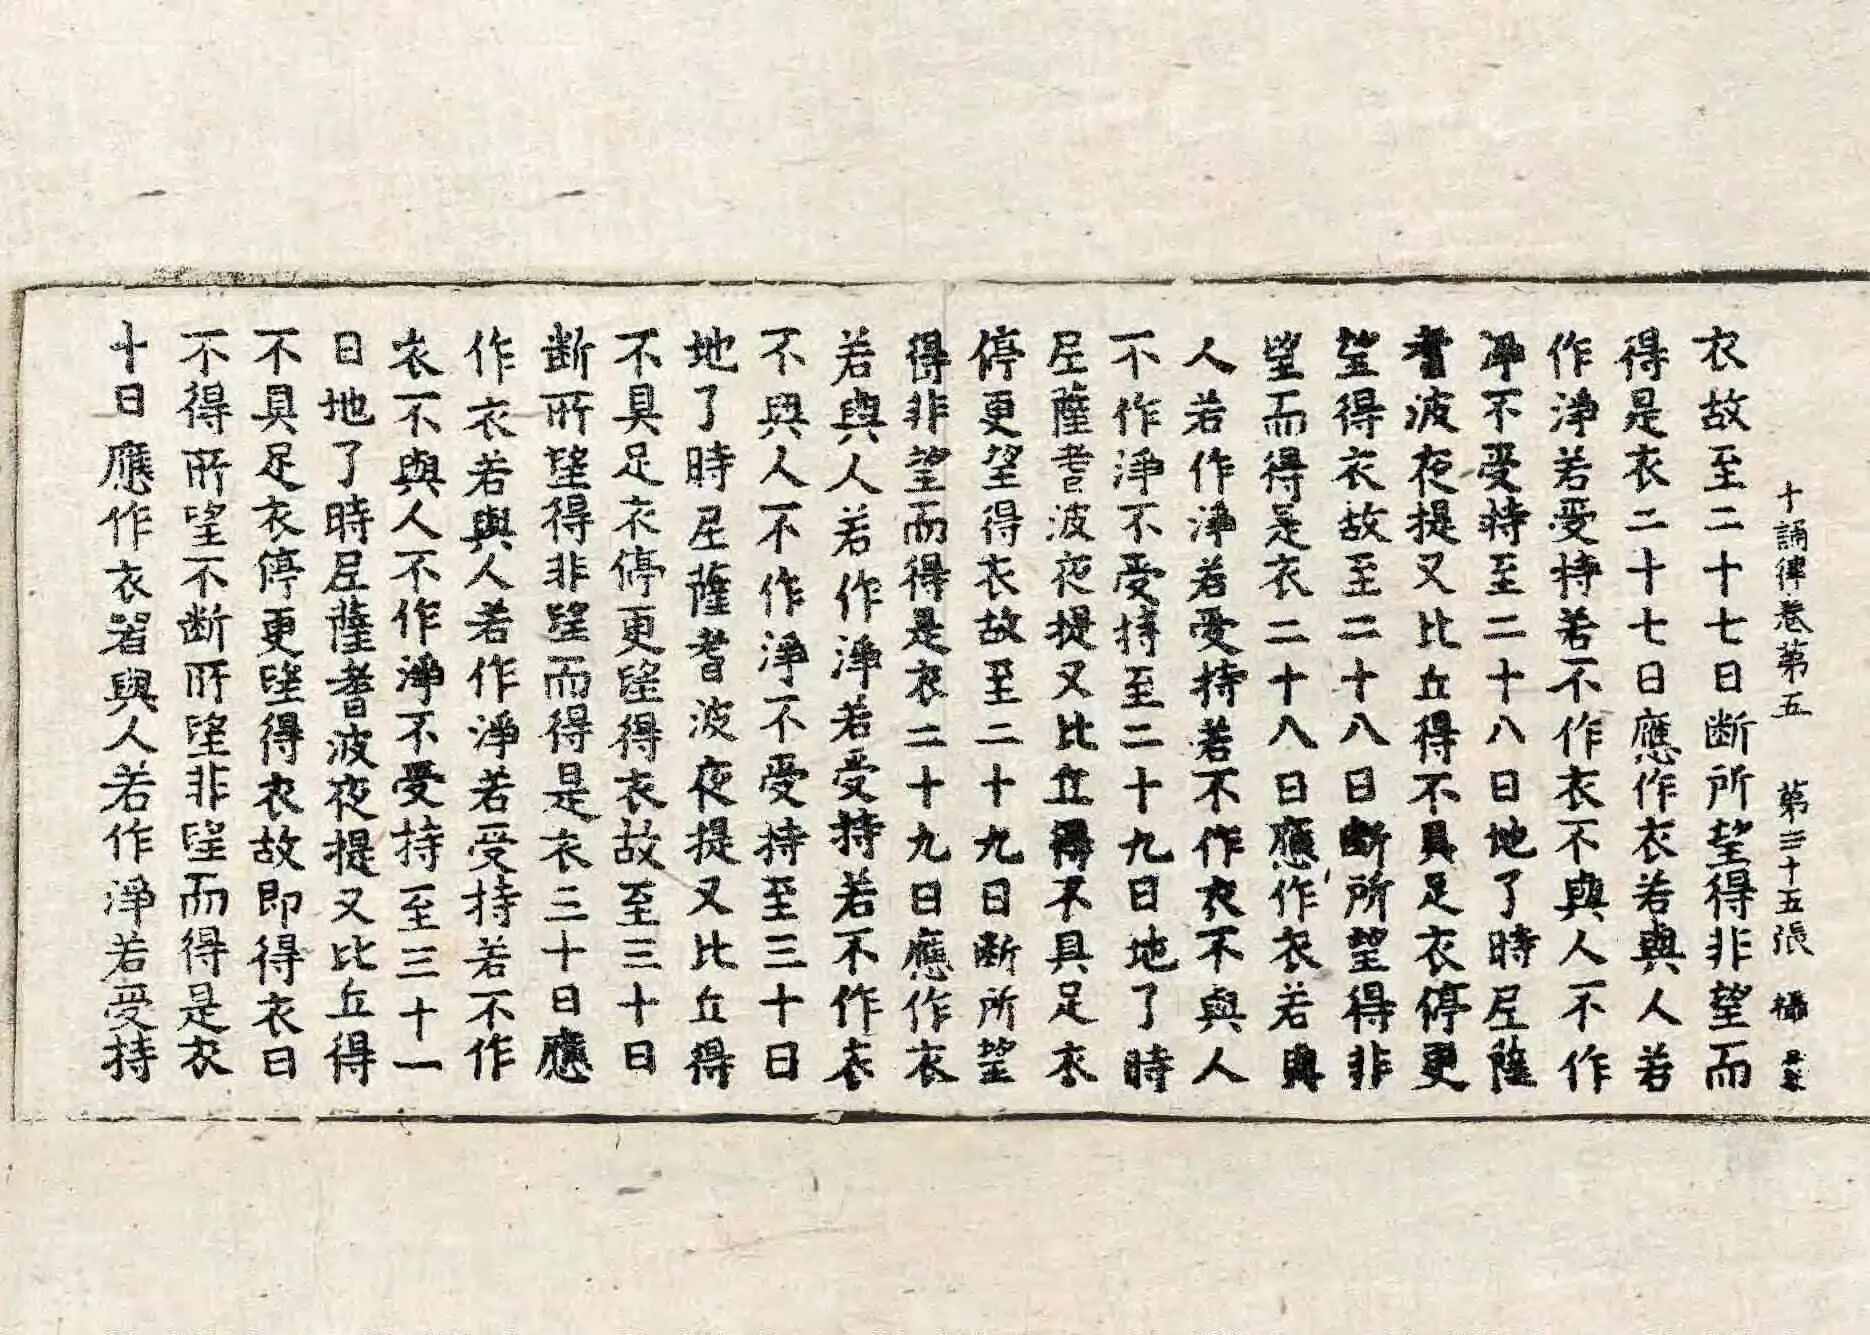 十誦律卷第五 第三十五張 攝
衣故至二十七日断所望得非望而
得是衣二十七日應作衣若與人若
作淨若受持若不作衣不與人不作
淨不受持至二十八日地了時尼薩
耆波夜提又比丘得不具足衣停更
望得衣故至二十八日断所望得非
望而得是衣二十八日應作衣若與
人若作淨若受持若不作衣不與人
不作淨不受持至二十九日地了時
尼薩耆波夜提又比丘得不具足衣
停更望得衣故至二十九日断所望
得非望而得是衣二十九日應作衣
若與人若作淨若受持若不作衣
不與人不作淨不受持至三十日
地了時尼薩耆波夜提又比丘得
不具足衣停更望得衣故至三十日
断所望得非望而得是衣三十日應
作衣若與人若作淨若受持若不作
衣不與人不作淨不受持至三十一
日地了時尼薩耆波夜提又比丘得
不具足衣停更望得衣故即得衣日
不得所望不断所望非望而得是衣
十日應作衣若與人若作淨若受持